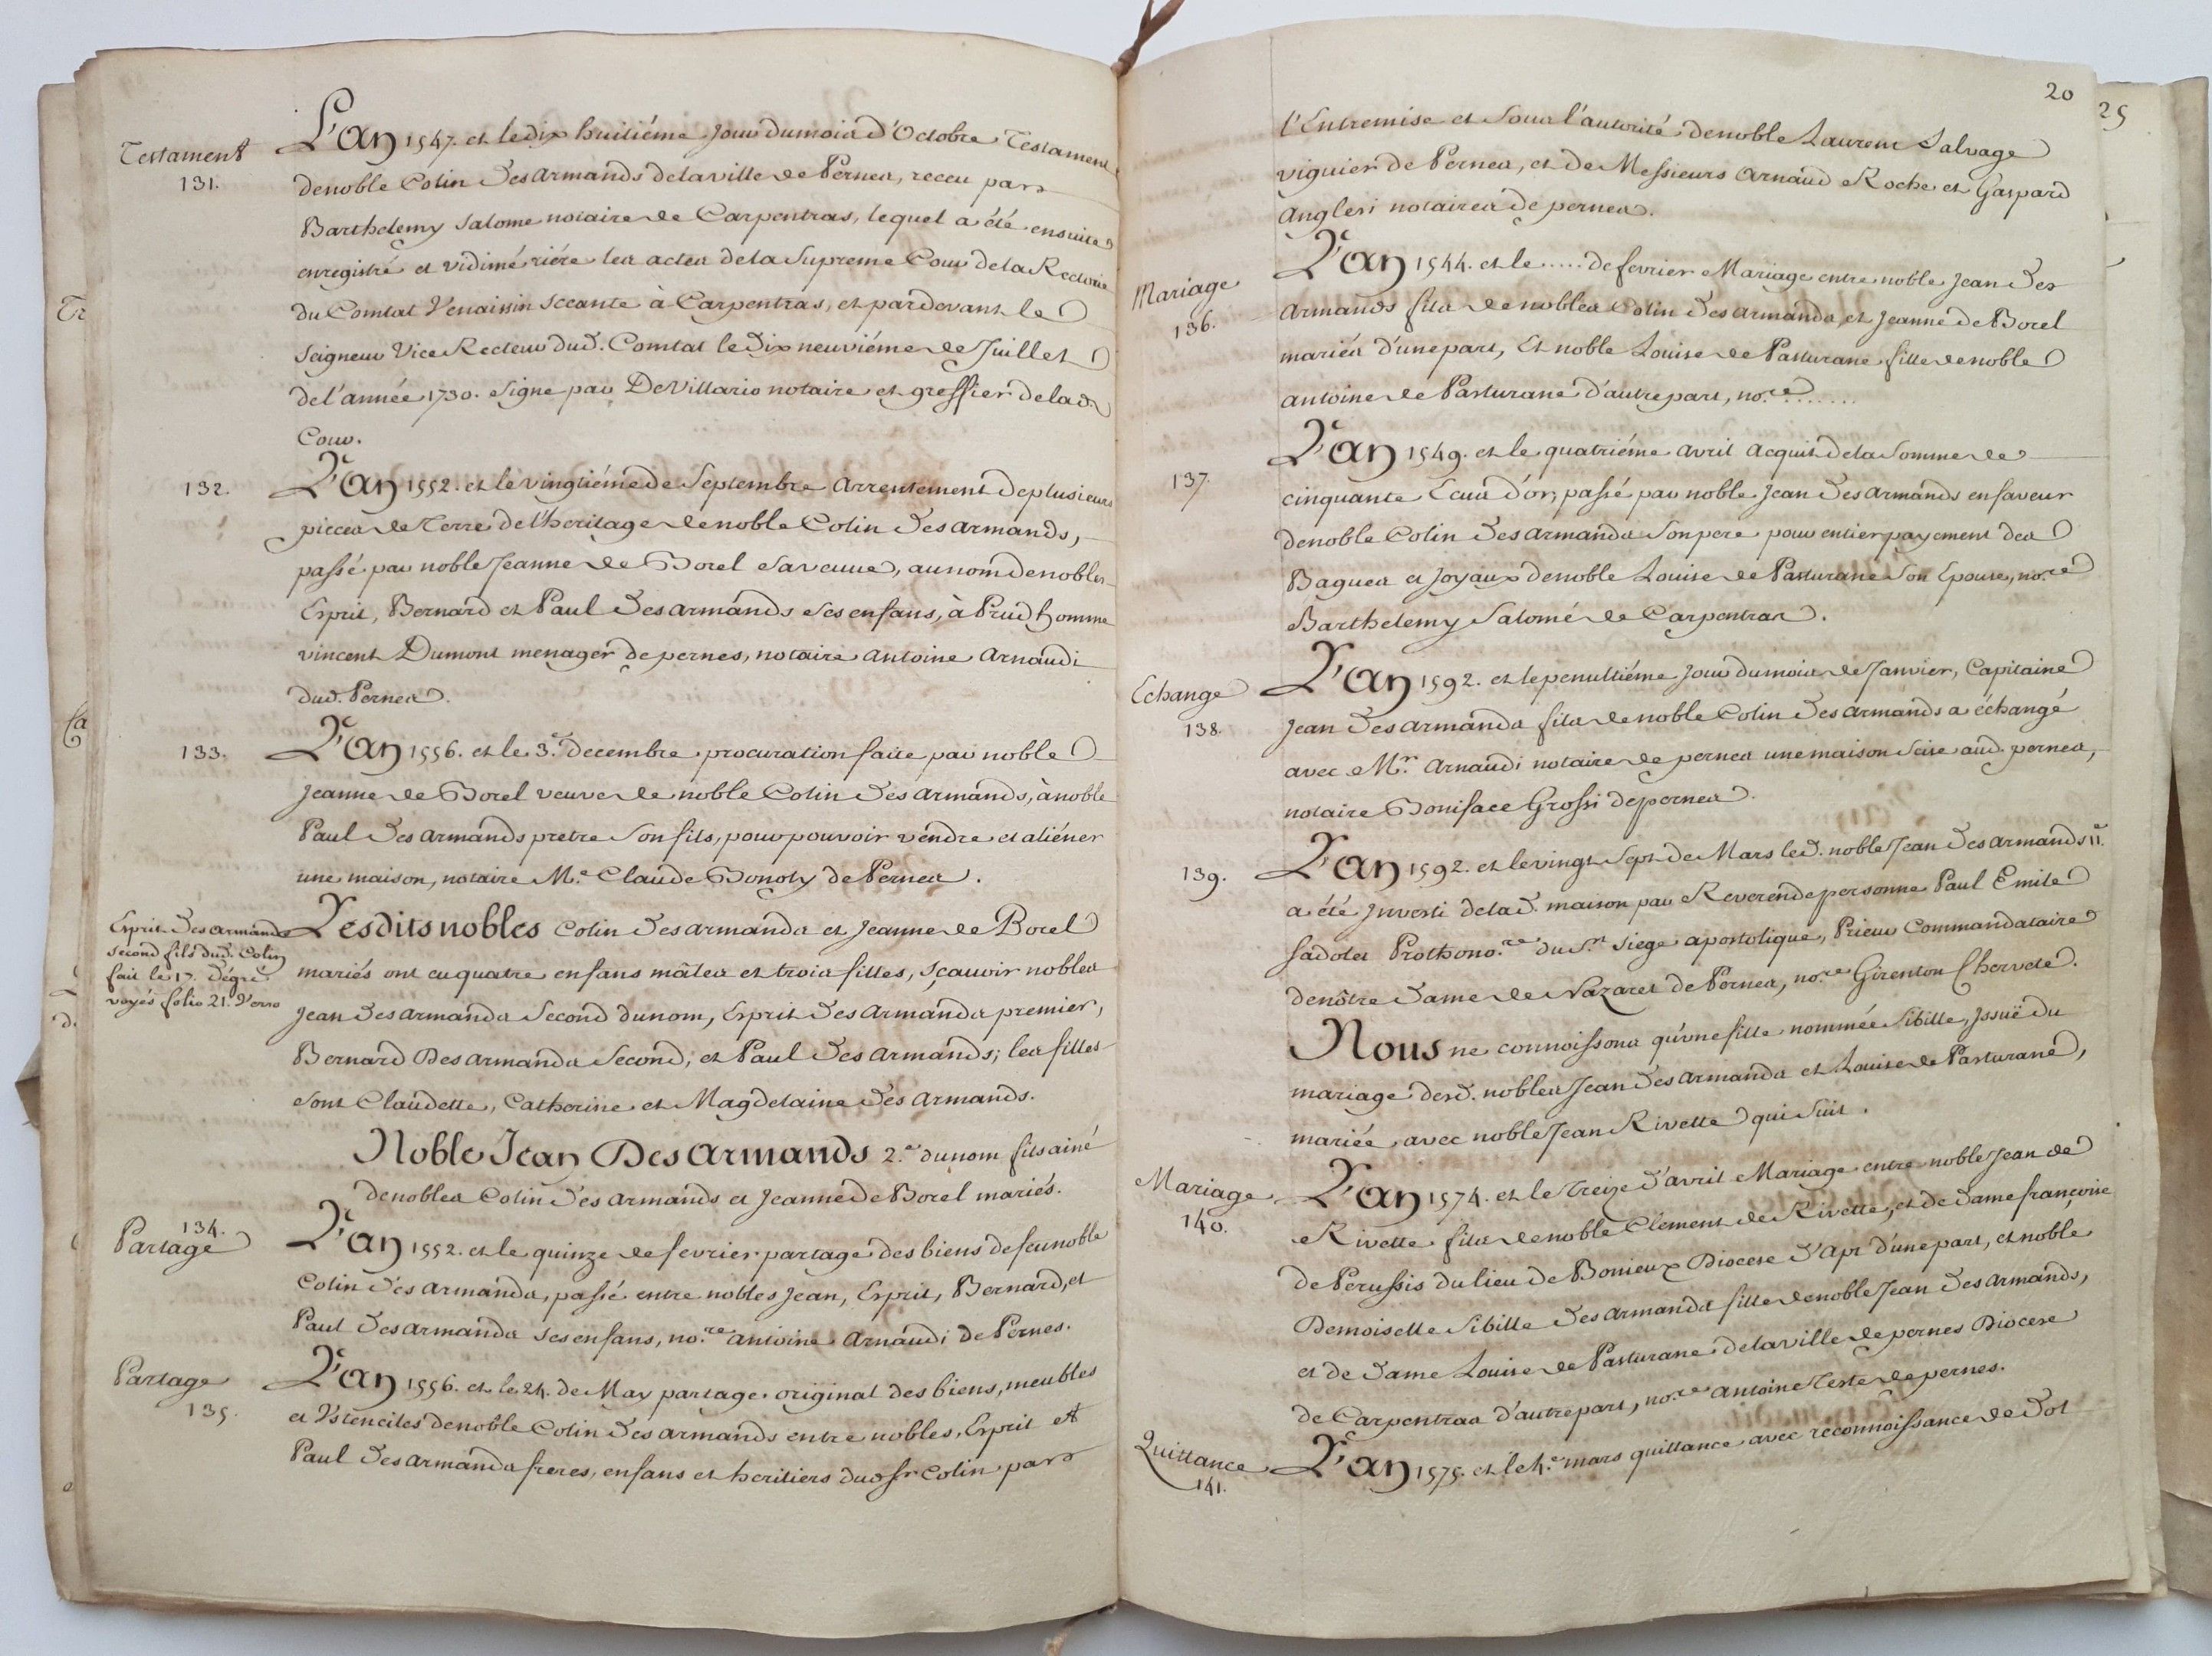 Testament
131.
L'an 1547. et le dix huitiéme jour du mois d'Octobre Testament
de noble Colin Des Armands de la ville de Pernes, receu par
Barthelemy Salome notaire de Carpentras, lequel a été ensuite
enregistré et vidimé riére les actes de la Supreme Cour de la Rectorie
du Comtat Venaissin sceante à Carpentras, et pardevant le
Seigneur Vice Recteur dud. Comtat le dix neuviéme de Juillet
de l'année 1730. signe par De Villario notaire et greffier de lad.
Cour.
132.
L'an 1552. et le vingtiéme de Septembre Arrentement de plusieurs
pieces de Terre de l'heritage de noble Colin Des Armands,
passé par noble Jeanne de Borel sa veuve, au nom de nobles
Esprit, Bernard et Paul Des Armands ses enfans, à Prud'homme
vincent Dumont menager de pernes, notaire Antoine Arnaudi
dud. Pernes.
133.
L'an 1556. et le 3.e decembre procuration faite par noble
Jeanne de Borel veuve de noble Colin Des Armands, à noble
Paul Des Armands pretre son fils, pour pouvoir vendre et aliéner
une maison, notaire M.e Claude Bonoty de Pernes.
Esprit Des Armands
second fils dud. Colin
fait le 17. Dégré
voyés folio 21. Verso
Lesdits nobles Colin Des Armands et Jeanne de Borel
mariés ont eu quatre enfans mâles et trois filles, sçavoir nobles
Jean Des Armands Second du nom, Esprit Des Armands premier,
Bernard Des Armands Second, et Paul Des Armands; les filles
sont Claudette, Catherine et Magdelaine Des Armands.
Noble Jean Des Armands 2.e du nom fils ainé
de nobles Colin Des Armands et Jeanne de Borel mariés.
134.
Partage
L'an 1552. et le quinze de fevrier partage des biens de feu noble
Colin Des Armands, passé entre nobles Jean, Esprit, Bernard, et
Paul Des Armands ses enfans, no.re Antoine Arnaudi de Pernes.
Partage
135.
L'an 1556. et le 24. de May partage original des biens, meubles
et Vstenciles de noble Colin Des Armands entre nobles, Esprit et
Paul Des Armands freres, enfans et heritiers dud. sr Colin par
20
25
l'Entremise et Sous l'autorité de noble Laurens Salvage
viguier de Pernes, et de Messieurs Arnaud Roche et Gaspard
Anglesi notaires de pernes.
Mariage
136.
L'an 1544. et le ..... de fevrier Mariage entre noble Jean Des
Armands fils de nobles Colin Des Armands, et Jeanne de Borel
mariés d'une part, Et noble Louise de Pasturane fille de noble
antoine de Pasturane d'autre part, no.re .......
137.
L'an 1549. et le quatriéme avril acquit de la Somme de
cinquante Ecus d'or, passé par noble Jean Des Armands en faveur
de noble Colin Des Armands Son pere pour entier payement des
Bagues et Joyaux de noble Louise de Pasturane Son Epouse, no.re
Barthelemy Salomé de Carpentras.
Echange
138.
L'an 1592. et le penultiéme jour du mois de Janvier, Capitaine
Jean Des Armands fils de noble Colin Des Armands a échangé
avec M.r Arnaudi notaire de pernes une maison Scise aud. pernes,
notaire Boniface Grossi de pernes.
139.
L'an 1592. et le vingt Sept de Mars led. noble Jean Des Armands II.e
a été Jnvesti de lad. maison par Reverende personne Paul Emile
Sadolet Prothono.re du S.t Siege apostolique, Prieur Commandataire
de nôtre Dame de Nazaret de Pernes, no.re Girenton Chervete.
Nous ne connoissons qu'vne fille nommée Sibille, Jssuë du
mariage desd. nobles Jean Des Armands et Louise de Pasturane,
mariée avec noble Jean Rivette qui Suit.
Mariage
140.
L'an 1574. et le Treize d'avril Mariage entre noble Jean de
Rivette fils de noble Clement de Rivette, et de Dame françoise
de Perussis du lieu de Bonieux Diocese d'Apt d'une part, et noble
Demoiselle Sibille Des Armands fille de noble Jean Des Armands,
et de Dame Louise de Pasturane de la ville de pernes Diocese
de Carpentras d'autre part, no.re Antoine Teste de pernes.
Quittance
141.
L'an 1575. et le 4.e mars quittance avec reconnoissance de Dot